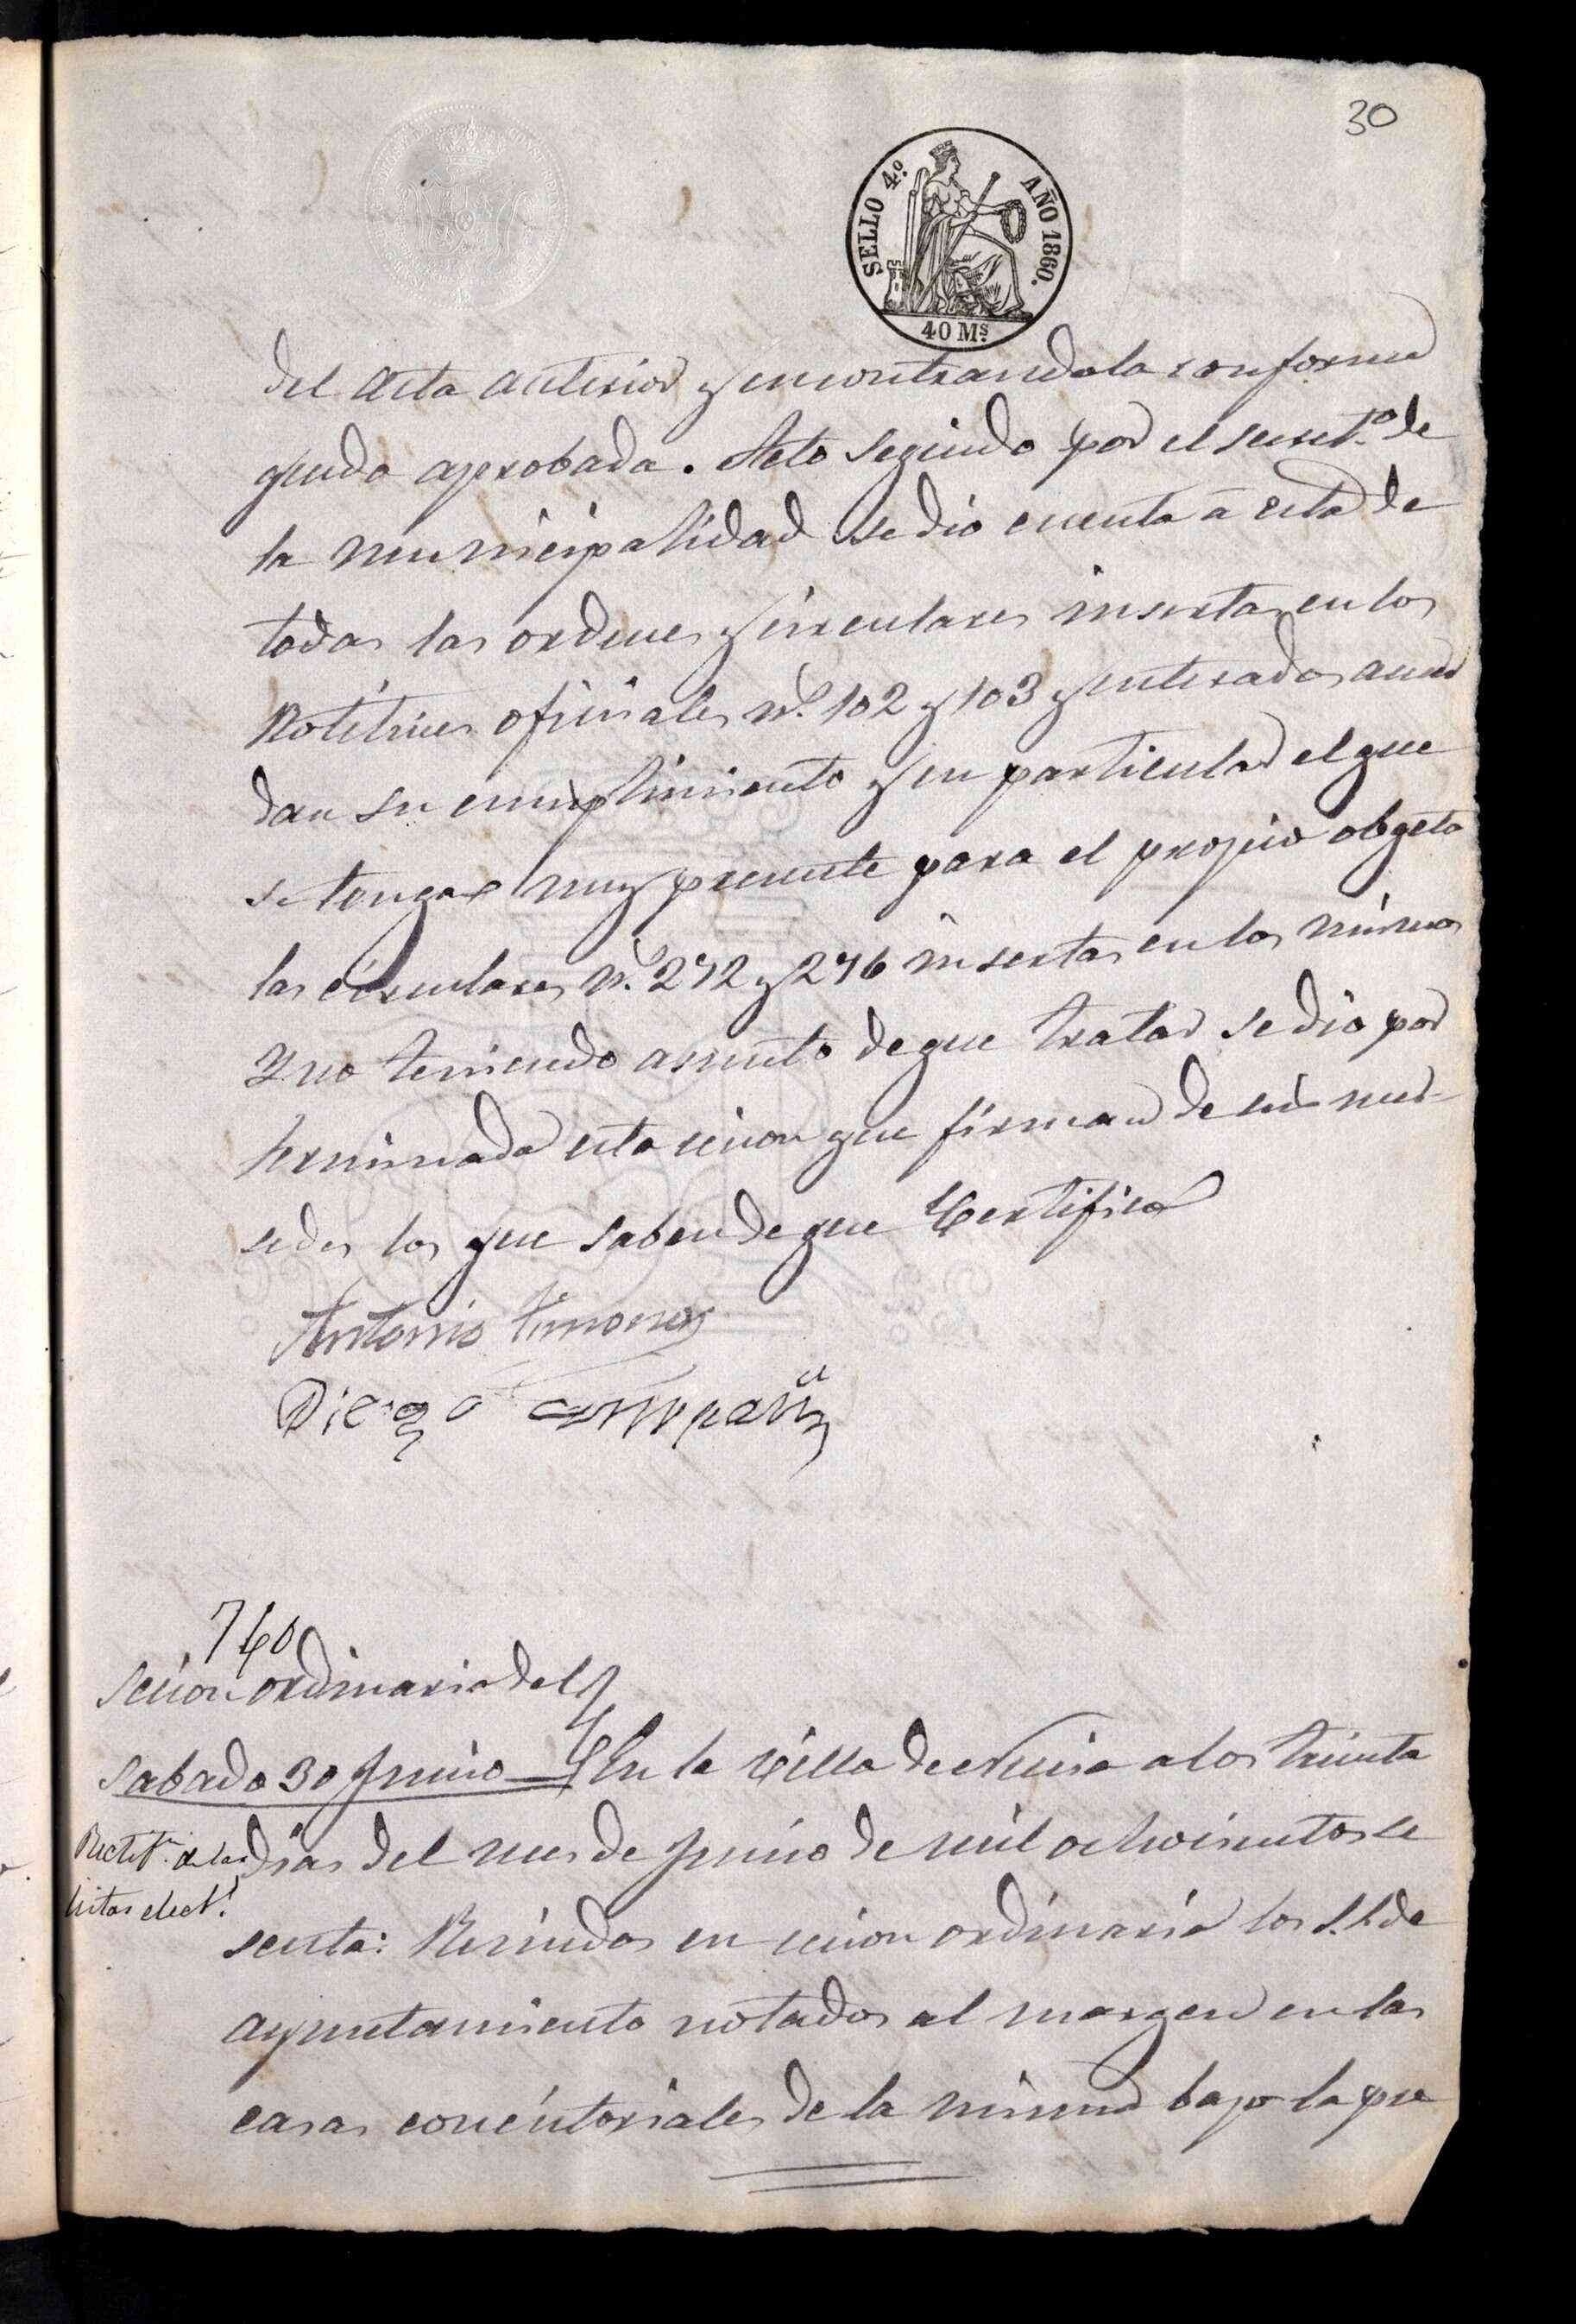 30
SELLO 4.º AÑO 1860.
40 Ms.
del Acta anterior y encontrandola conforme
quedo aprobada. Acto seguido por el secret.º de
la municipalidad se dio cuenta a esta de
todas las ordenes y circulares insertas en los
Boletines oficiales n.º 102 y 103 y enterados acuer
dan su cumplimiento y en particular el que
se tenga muy presente para el propio obgeto
las circulares n.º 272 y 276 insertas en los mismos
Y no teniendo asunto de que tratar se dio por
terminada esta secion que firman de sus mer-
sedes los que saben de que Certifico
Antonio
Diego Company
760
Secion ordinaria del
Sabado 30 Junio En la Villa de Nucia a los treinta
Rectif.n de las
listas elect.s
dias del mes de Junio de mil ochocientos se
senta: Reunidos en secion ordinaria los S.S. de
ayuntamiento notados al margen en las
casas concistoriales de la misma bajo la pre